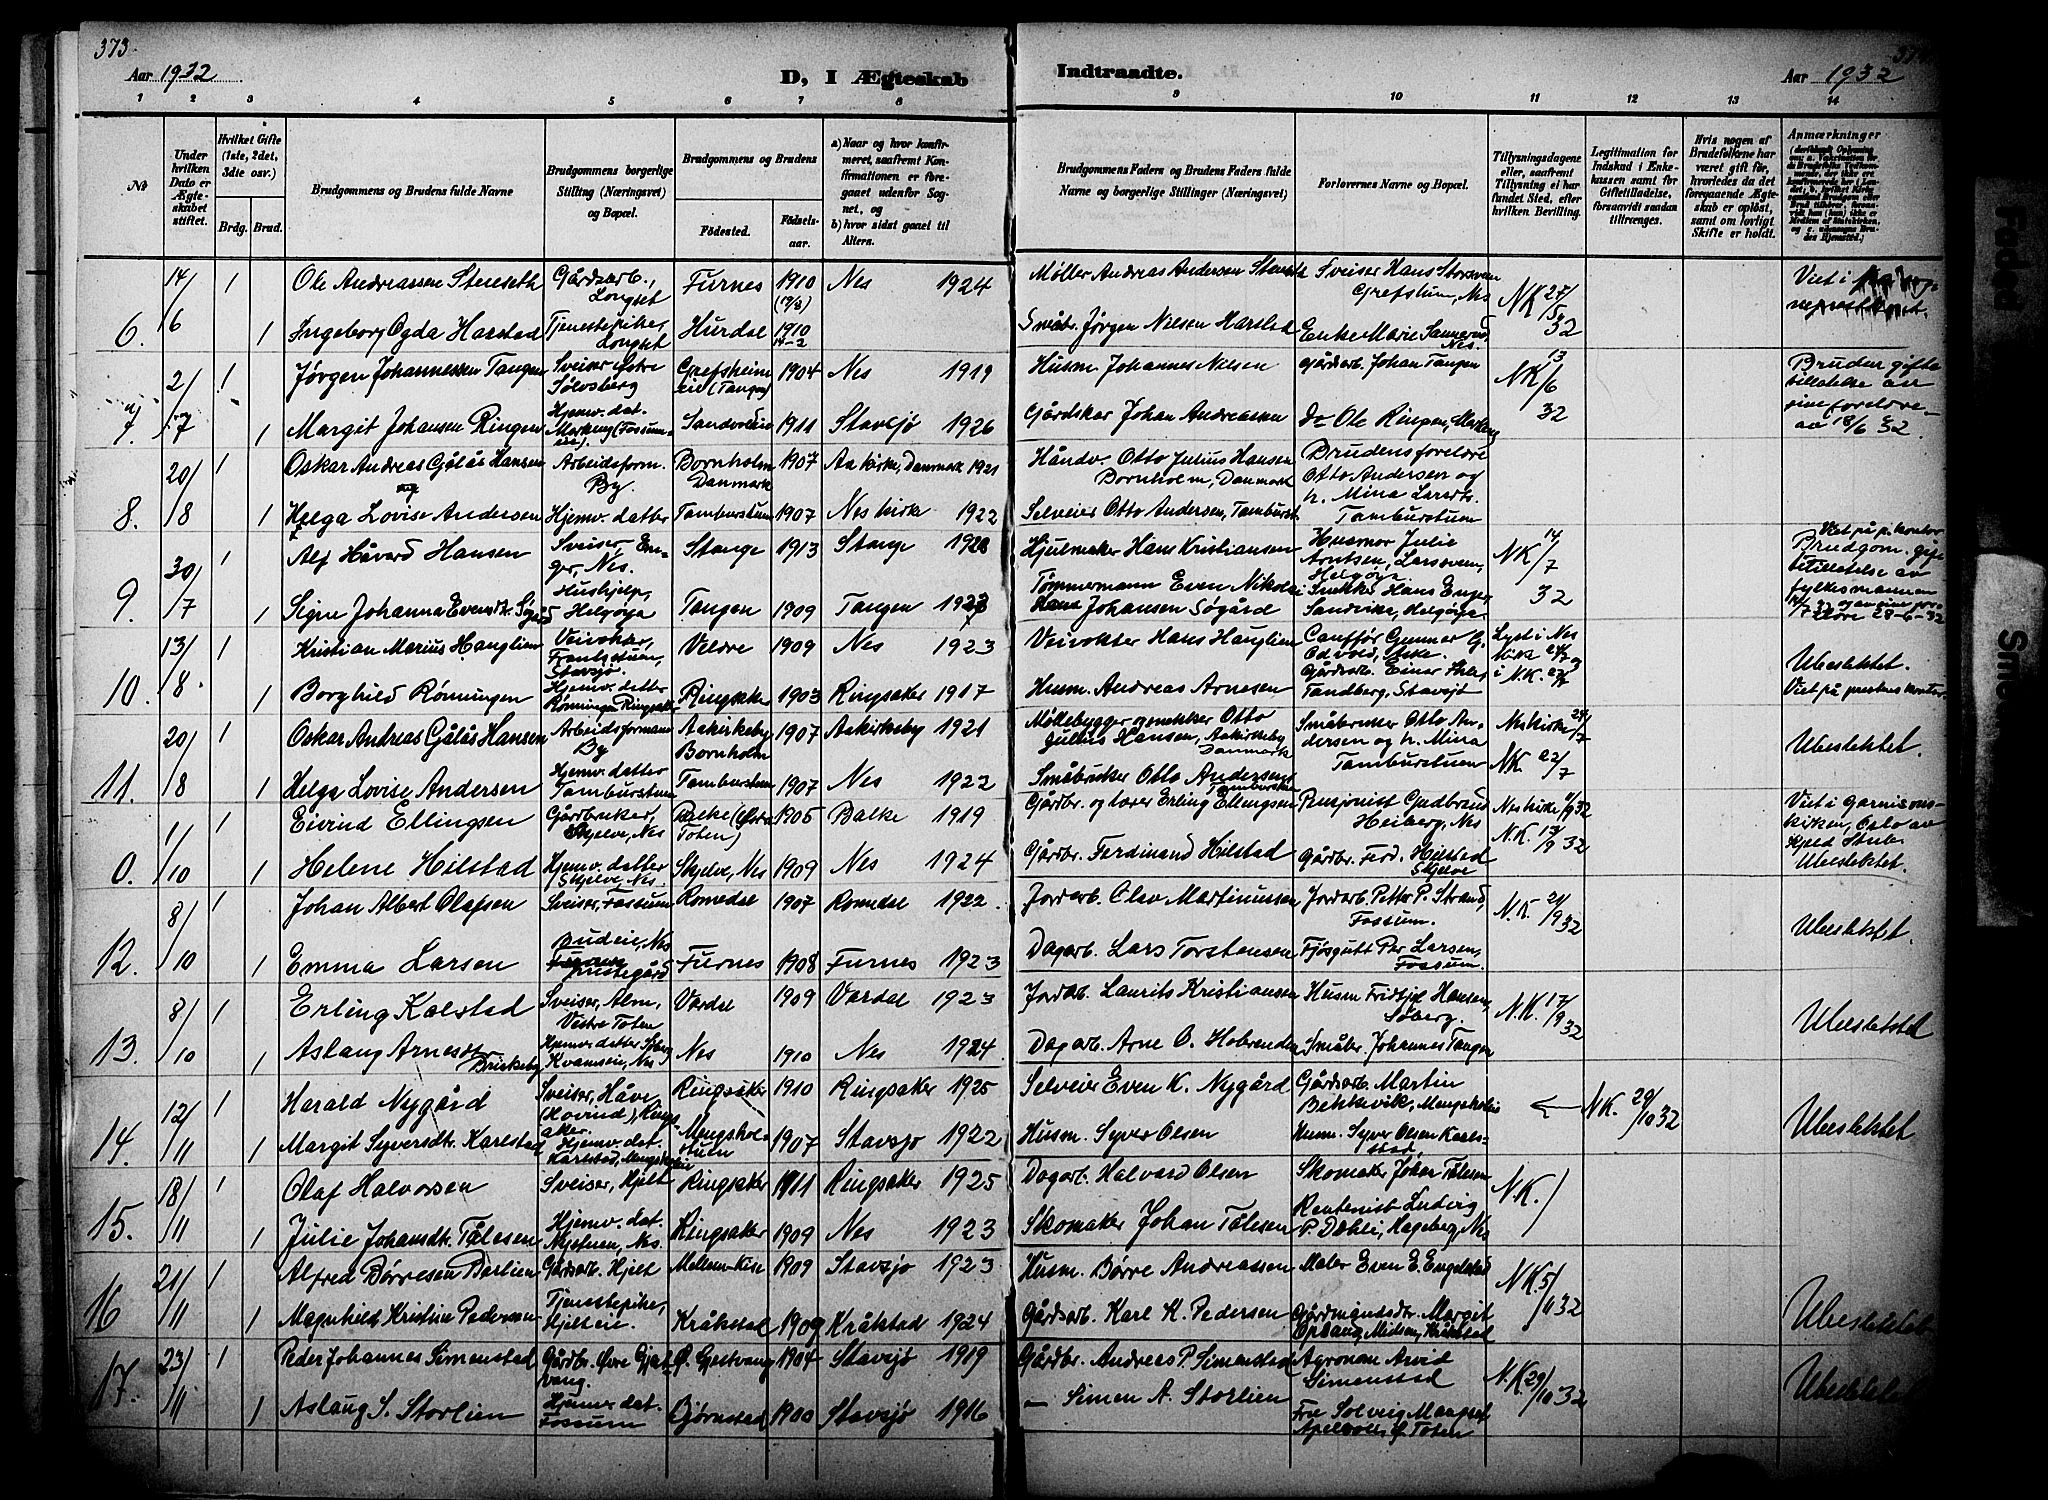 373
Aar 1932
D, I Ægteskab
Indtraadte.
Aar 1932
1 2 3 4 5 6 7 8 9 10 11 12 13 14
No
Under hvilken Dato er Ægteskabet stiftet.
Hvilket Gifte (1ste, 2det, 3die osv.)
Brdg. Brud.
Brudgommens og Brudens fulde Navne
Brudgommens borgerlige Stilling (Næringsvei) og Bopæl.
Brudgommens og Brudens
Fødested.
Fødselsaar.
a) Naar og hvor konfirmeret, saafremt Konfirmationen er foregaaet udenfor Sognet, og
b) hvor sidst gaaet til Alters.
Brudgommens Faders og Brudens Faders fulde Navne og borgerlige Stillinger (Næringsvei)
Forlovernes Navne og Bopæl.
Tillysningsdagene eller, saafremt Tillysning ei har fundet Sted, efter hvilken Bevilling.
Legitimation for Indskud i Enkekassen samt for Giftetilladelse, forsaavidt saadan tiltrænges.
Hvis nogen af Brudefolkene har været gift før, hvorledes da det foregaaende Ægteskab er opløst, samt om lovligt Skifte er holdt.
Anmærkninger
6. 14/6 1 Ole Andreassen Steneseth Gårdsarb., Longset Furnes 1910 Nes 1924 Møller Andreas Andersen Sveiser Hans Storsveen Grefstum, Nes NK 27/5 32 Viet i
1 Ingeborg Hurdal 1910 Småbr. Jørgen Nielsen Enke Marie Nes.
Tjenestepike, Longset
7. 2/7 1 Jørgen Johannessen Tangen Sveiser Østre Sølvsberg Grefsheim eie (Tangen) 1904 Nes 1919 Husm. Johannes Nilsen Gårdarb. Johan Tangen NK 13/6 32 Brudens giftetilladelse av sine foreldre av 18/6 32
1 Margit Johansen Ringen Hjemv. dat. 1911 Stavsjø 1926 Gårdskar Johan Andreassen do Ole Ringen,
8. 20/8 1 Oskar Andreas Gålås Hansen Arbeidsform. By. Bornholm Danmark 1907 Aakirke, Danmark 1921 Håndv. Otto Julius Hansen Bornholm, Danmark Brudens foreldre Otto Andersen og h. Mina
1 Helga Lovise Andersen Hjemv. datter Tamburstuen 1907 Nes kirke 1922 Selveier Otto Andersen, Tamburstuen
9. 30/7 1 Alf Håvard Hansen Sveiser Enger, Nes. Stange 1913 Stange 1928 Hjulmaker Hans Kristiansen Husmor Julie Arntsen, Larssveen, Helgøya NK 14/7 32 Viet på p. kontor Brudgom. giftetilladelse av fylkesmannen
1 Signe Johanna Evensdtr. Søgård Hushjelp, Helgøya Tangen 1909 Tangen Tømmermann Even Nikolai Johansen Søgård Snekker Hans Enger Sandvika, Helgøya
10. 13/8 1 Kristian Marius Hauglien Veivokter, Stavsjø Veldre 1909 Nes 1923 Veivokter Hans Hauglien Lyst i Nes kirke Ubeslektet.
1 Borghild Rønningen Hjemv. datter Rønningen Ringsaker Ringsaker 1903 Ringsaker 1917 Husm. Andreas Arnesen Tandberg, Stavsjø Viet på prestens kontor
11. 20/8 1 Oskar Andreas Gålås Hansen Arbeidsformann By Aakirkeby Bornholm 1907 Aakirkeby 1921 Møllebygger og snekker Otto Julius Hansen, Aakirkeby Danmark Småbruker Otto Andersen og h. Mina Tamburstuen Nes kirke 24/7 NK. 22/7 Ubeslektet.
1 Helga Lovise Andersen Hjemv. datter Tamburstuen Tamburstuen 1907 Nes 1922 Småbruker Otto Andersen Tamburstuen
0. 1/10 1 Eivind Ellingsen Gårdbruker, Skjelve, Nes Balke (Østre Toten) 1905 Balke 1919 Gårdbr. og lærer Erling Ellingsen Pensjonist Gudbrand Heiberg, Nes Nes kirke N.K. Viet i Garnisonskirken, Oslo av
1 Helene Hilstad Hjemv. datter Skjelve, Nes. Skjelve, Nes 1909 Nes 1924 Gårdbr. Ferdinand Hilstad Gårdbr. Ferd. Hilstad Skjelve Ubeslektet.
12. 8/10 1 Johan Albert Olafsen Sveiser, Fossum Romedal 1907 Romedal 1922 Jordarb. Olav Martinussen Jordarb. Petter P. Strand, Fossum. N.K. 21/9 32 Ubeslektet.
1 Emma Larsen Budeie, Nes prestegård Furnes 1908 Furnes 1923 Dagarb. Lars Torstensen Fjøsgutt Per Larsen, Fossum.
13. 8/10 1 Erling Kolstad Sveiser, Alm, Vestre Toten Vardal 1909 Vardal 1923 Jordarb. Laurits Kristiansen Husm Fridtjof Hansen, Søberg. N.K. 17/9 32 Ubeslektet
1 Aslaug Arnesdtr. Bruskeby Hjemv. datter Nes 1910 Nes 1924 Dagarb. Arne O. Småbr Johannes Tangen
14. 12/11 1 Harald Nygård Sveiser, Håve (Hovind), Ringsaker. Ringsaker 1910 Ringsaker 1925 Selveier Even K. Nygård Gårdsarb. Martin Bekkevik, N.K. 29/10 32 Ubeslektet
1 Margit Syversdtr. Karlstad Hjemv. dat. Karlstad, Mengsholstuen 1907 Stavsjø 1922 Husm. Syver Olsen Husm. Syver Olsen Karlstad,
15. 18/11 1 Olaf Halvorsen Sveiser, Hjelt Ringsaker 1911 Ringsaker 1925 Dagarb. Halvard Olsen Skomaker Johan Tålesen N.K.
1 Julie Johansdtr. Tålesen Hjemv. dat. Ringsaker 1909 Nes 1923 Skomaker Johan Tålesen Rentenist Ludvig P. Dæhli, Hageberg, Nes
16 21/11 1 Alfred Børresen Dorlien Gårdsarb. Hjelt Mellem-Kise 1909 Stavsjø 1923 Husm. Børre Andreassen Maler Even E. Engelstad N.K. 5/11 32 Ubeslektet
1 Magnhild Kristine Pedersen Tjenestepike, Hjelteie Kråkstad 1909 Kråkstad 1924 Gårdsarb. Karl K. Pedersen Margit
17. 23/11 1 Peder Johannes Simenstad Gårdbr. Øvre Gjestvang Ø. Gjestvang 1904 Stavsjø 1919 Gårdbr. Andreas P. Simenstad Agronom Arvid Simenstad N.K 29/10 32 Ubeslektet
1 Aslaug S. Storlien Hjemv. dat. Fossum Bjørnstad 1900 Stavsjø 1916 — Simen A. Storlien Frk Solveig Apelvoll, Ø Toten